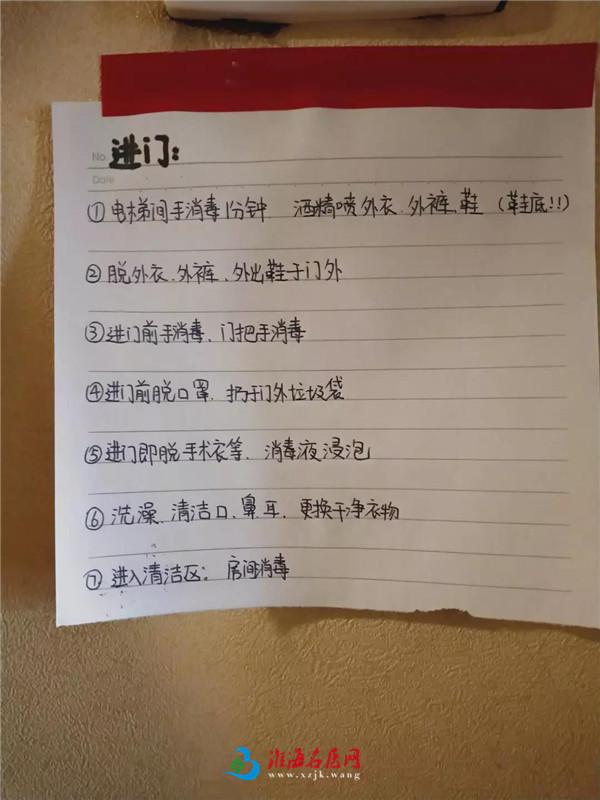 No.
进门:
Date
①电梯间手消毒1分钟 酒精喷外衣、外裤、鞋(鞋底!!)
②脱外衣、外裤、外出鞋于门外
③进门前手消毒、门把手消毒
④进门前脱口罩、扔于门外垃圾袋
⑤进门即脱手术衣等、消毒液浸泡
⑥洗澡、清洁口、鼻、耳、更换干净衣物
⑦进入清洁区:房间消毒
淮海名医网
www.xzjk.wang